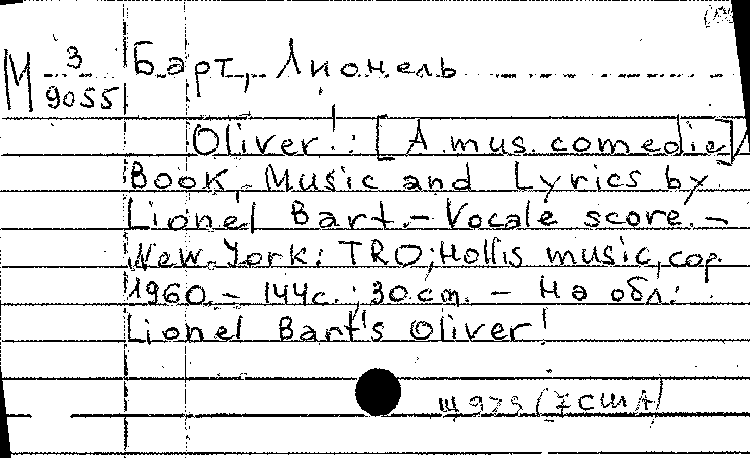 М 3/9055
Барт, Лионель
Oliver!: [A mus. comedie] /
Book, Music and Lyrics by
Lionel Bart. – Vocale score. –
New-York: TRO; Hollis music, cop.
1960. – 144 с.; 30 cm. – На обл.:
Lionel Bart's Oliver!
Щ 979 (7 США)